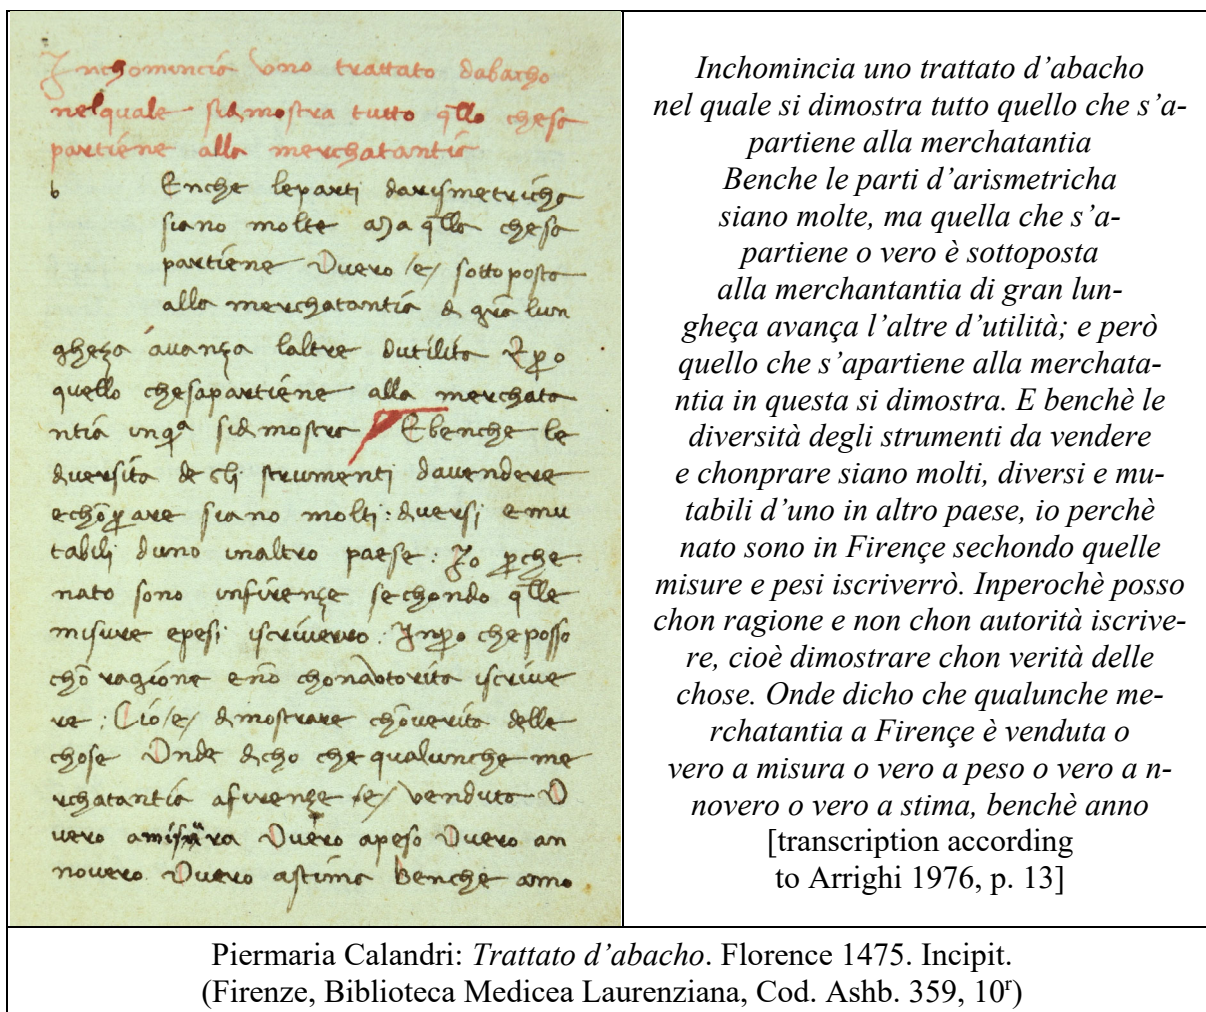 Inchomincia vno trattato dabacho
nelquale sidimostra tutto qllo chesa
partiene alla merchatantia
b Enche leparti darismetricha
siano molte Ma qlla chesa
partiene Overo /e/ sottoposta
alla merchatantia di grā lun
gheza avanza laltre dutilita Epo
quello chesapartiene alla merchata
ntia inqa sidimostra Ebenche le
diversita de gli strumenti davendere
echōpare siano molti: diversi emu
tabili duno inaltro paese: Io pche
nato sono infirençe sechondo qlle
misure epesi iscriverro: Inpo cheposso
chō ragione enō chonaotorita iscrive
re: Cio/e/ dimostrare chōverita delle
chose Onde dicho che qualunche me
rchatantia afirençe /e/ venduta O
vero amisura Overo apeso Overo an
novero Overo astima Benche anno
Inchomincia uno trattato d’abacho
nel quale si dimostra tutto quello che s’a-
partiene alla merchatantia
Benche le parti d’arismetricha
siano molte, ma quella che s’a-
partiene o vero è sottoposta
alla merchantantia di gran lun-
gheça avança l’altre d’utilità; e però
quello che s’apartiene alla merchata-
ntia in questa si dimostra. E benchè le
diversità degli strumenti da vendere
e chonprare siano molti, diversi e mu-
tabili d’uno in altro paese, io perchè
nato sono in Firençe sechondo quelle
misure e pesi iscriverrò. Inperochè posso
chon ragione e non chon autorità iscrive-
re, cioè dimostrare chon verità delle
chose. Onde dicho che qualunche me-
rchatantia a Firençe è venduta o
vero a misura o vero a peso o vero a n-
novero o vero a stima, benchè anno
[transcription according
to Arrighi 1976, p. 13]
Piermaria Calandri: Trattato d’abacho. Florence 1475. Incipit.
(Firenze, Biblioteca Medicea Laurenziana, Cod. Ashb. 359, 10r)